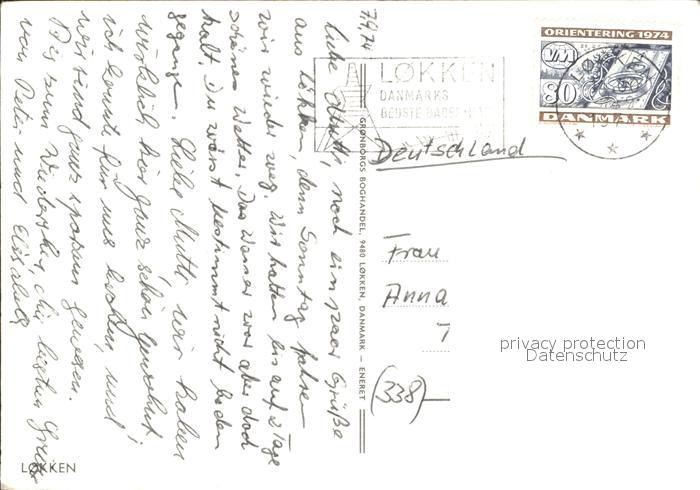 7.9.74
Liebe Mutti, noch ein paar Grüße
aus Løkken, denn Sonntag fahren
wir wieder weg. Wir hatten bis auf 2 Tage
schönes Wetter. Das Wasser war aber doch
kalt. Du wärst bestimmt nicht baden
gegangen. Liebe Mutti, wir haben
wirklich hier ganz schön
ich konnte für uns kochen, und
wir sind ganz sparsam gewesen.
Bis zum Wiedersehn die besten Grüße
von Peter und Elisabeth
LØKKEN
GRØNBORGS BOGHANDEL, 9480 LØKKEN, DANMARK — ENERET
LØKKEN
DANMARKS
BEDSTE BADESTRAND
ORIENTERING 1974
VM
80
DANMARK
Deutschland
Frau
Anna
(338)
privacy protection
Datenschutz